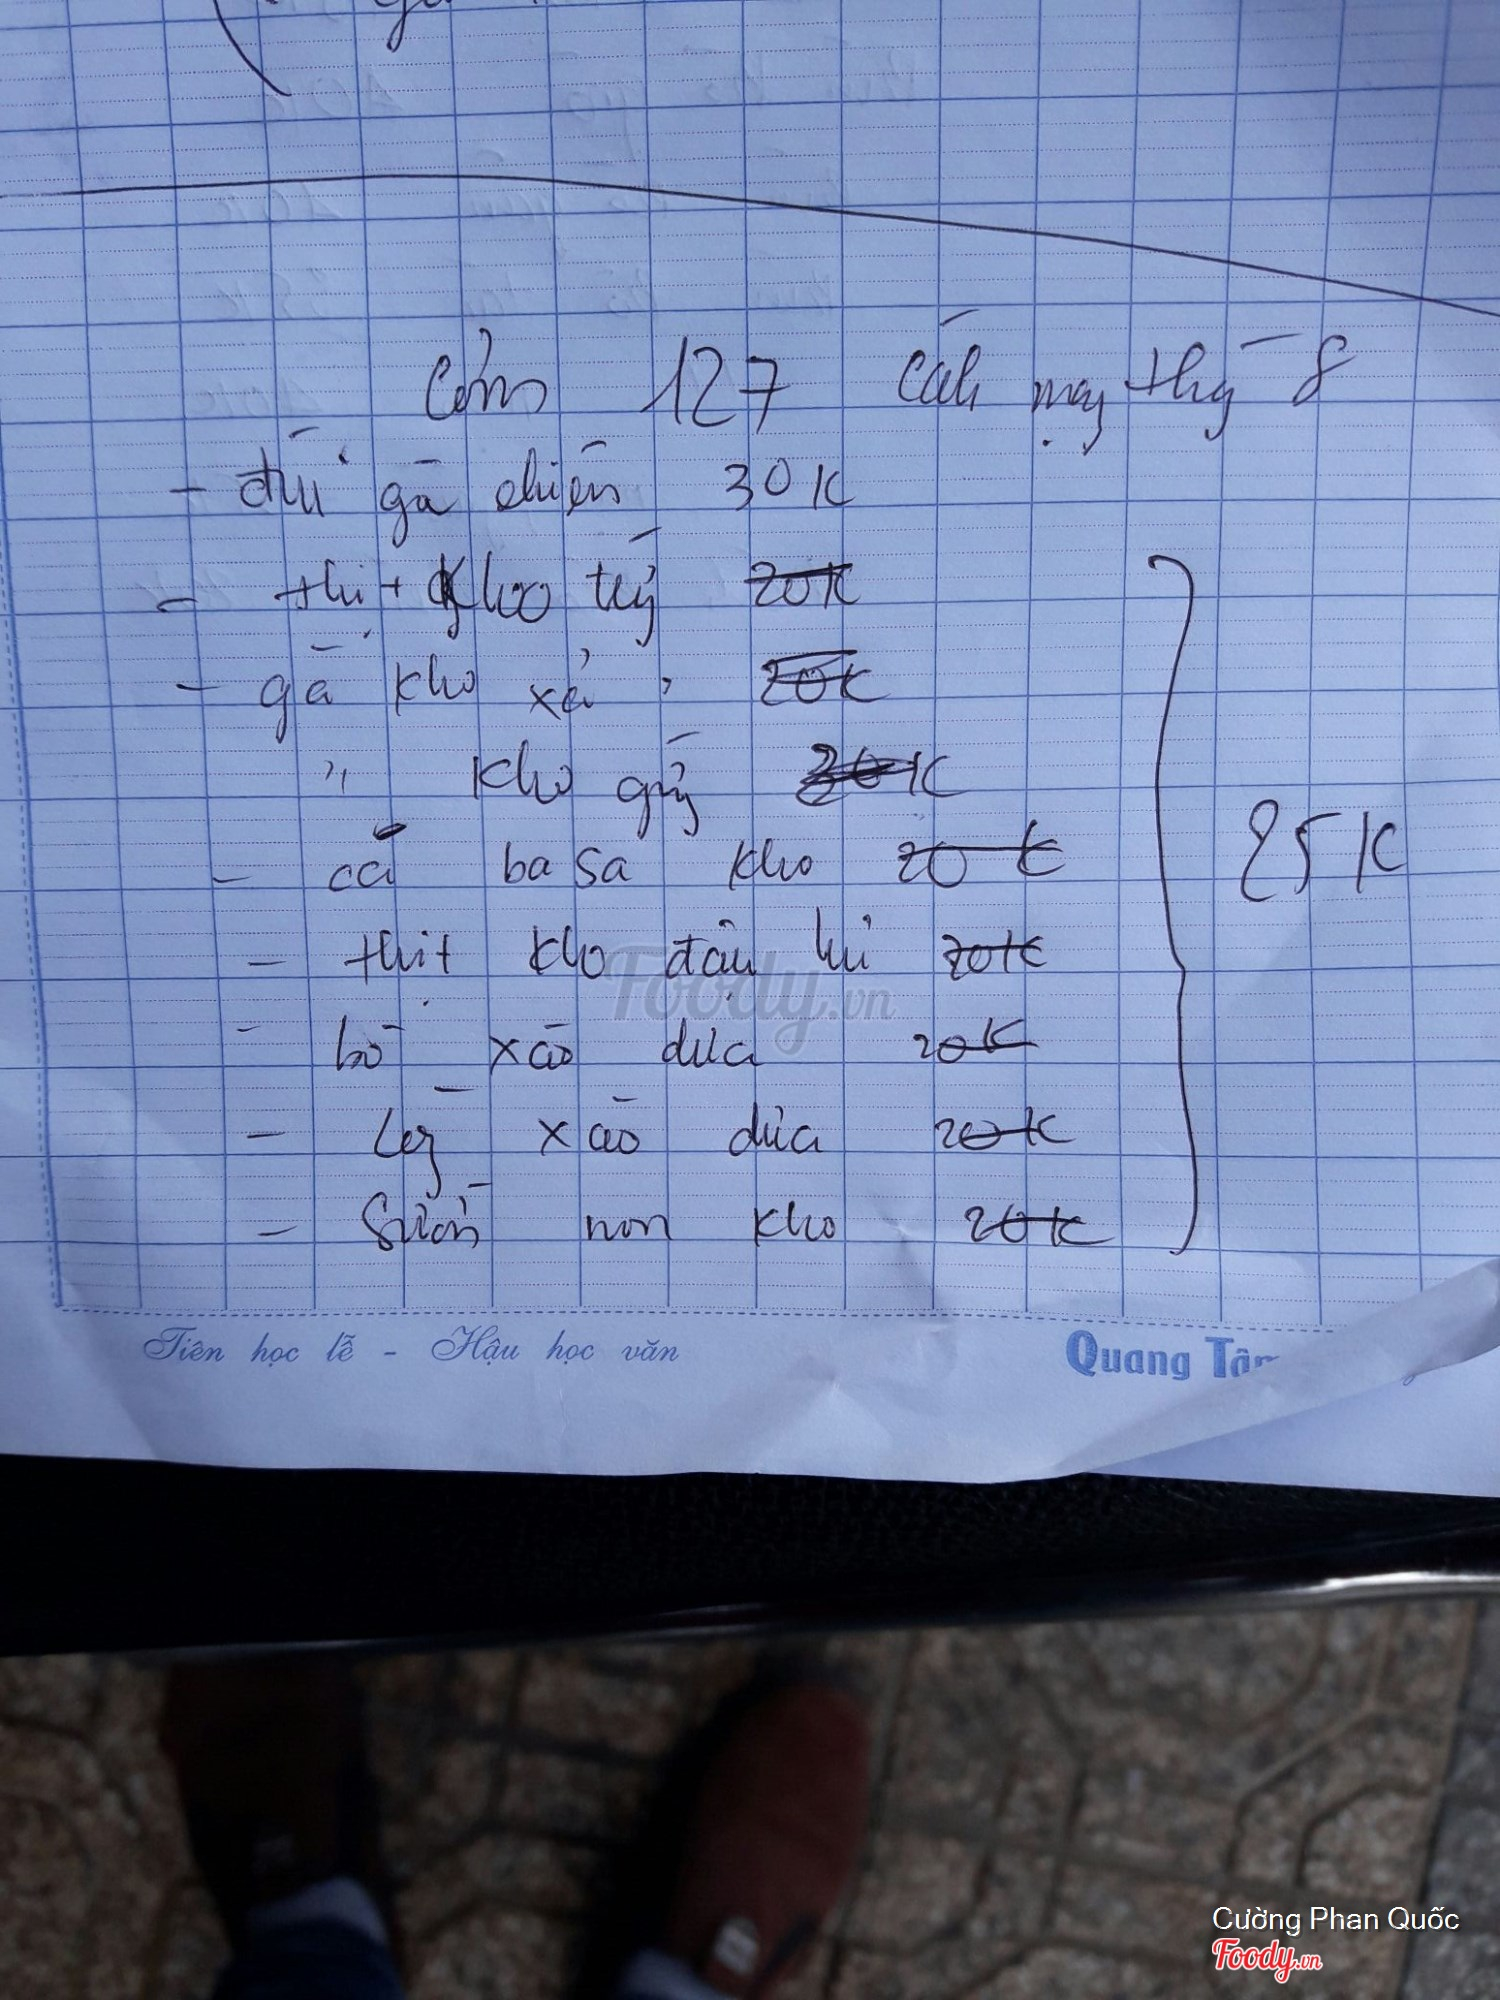 Cơm 127 Cách mạng tháng 8
- đùi gà chiên 30K
- thịt kho trứng 20K
- gà kho xả 20K
" kho gừng 30K
- cá basa kho 20K
- thịt kho đậu hủ 20K
- bò xào dưa 20K
- lòng xào dưa 20K
- Sườn non kho 20K
25K
Foody.vn
Tiên học lễ - Hậu học văn
Quang Tâm
Cường Phan Quốc
Foody.vn